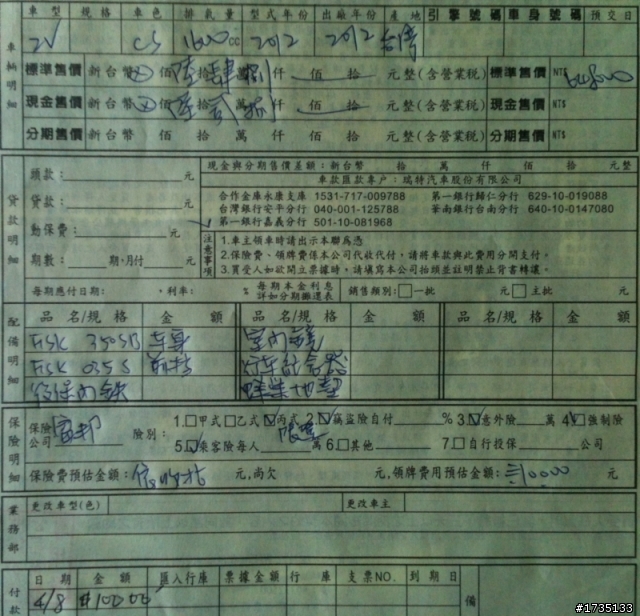 車型 規格 車色 排氣量 型式年份 出廠年份 產地 引擎號碼 車身號碼 預交日
CS 1600cc 2012 2012 台灣
車輛明細
標準售價 新台幣 佰 拾 萬 仟 佰 拾 元整(含營業稅) 標準售價 NT$
現金售價 新台幣 佰 拾 萬 仟 佰 拾 元整(含營業稅) 現金售價 NT$
分期售價 新台幣 佰 拾 萬 仟 佰 拾 元整(含營業稅) 分期售價 NT$
貸款明細
頭款: 元
貸款: 元
動保費: 元
期數: 期,月付 元
現金與分期售價差額:新台幣 拾 萬 仟 佰 拾 元整
車款匯款專戶:瑞特汽車股份有限公司
合作金庫永康支庫 1531-717-009788 第一銀行歸仁分行 629-10-019088
台灣銀行安平分行 040-001-125788 華南銀行台南分行 640-10-0147080
第一銀行嘉義分行 501-10-081968
注意事項
1.車主領車時請出示本聯為憑
2.保險費、領牌費係本公司代收代付,請將車款與此費用分開支付。
3.買受人如欲開立票據時,請填寫本公司抬頭並註明禁止背書轉讓。
每期應付日期: ,利率: % 每期本金利息詳如分期攤還表 銷售類別:□一批 元□主批 元
配備明細
品名/規格 金額 品名/規格 金額 品名/規格 金額
FSK 35OSB 車身 室內鏡
FSK 035S 前檔 行車紀錄器
蜂巢地墊
保險明細
保險公司 富邦 險別: 1.□甲式□乙式☑丙式 2☑竊盜險自付 % 3☑意外險 萬 4☑強制險
5☑乘客險每人 萬 6□其他 7□自行投保 公司
保險費預估金額: 元,尚欠 元,領牌費用預估金額: 10000 元
業務部
更改車型(色) 更改車主
付款
日期 金額 匯入行庫 票據金額 行庫 支票NO. 到期日 備
4/8 $10000
#1735133